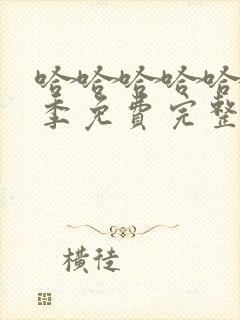 哈哈哈哈哈
季免费完整
横徒